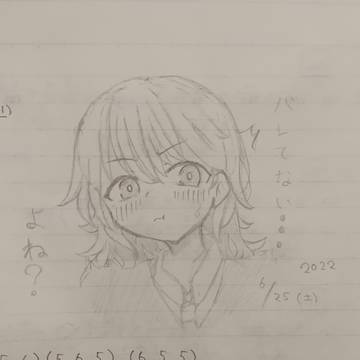 バレてない・・・
よね?
2022
6/25(土)
(5,6,5) (6,5,5)